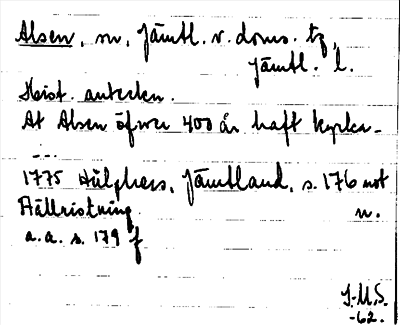 Alsen, sn, Jämtl. v. doms. tg,
Jämtl. l.
Hist. anteckn.
At Alsen öfwer 400 år haft kyrka
---
1775 Hülphers, Jämtland, s. 176 not
Hällristning. n.
a.a. s. 179 f
J.M.S.
-62.